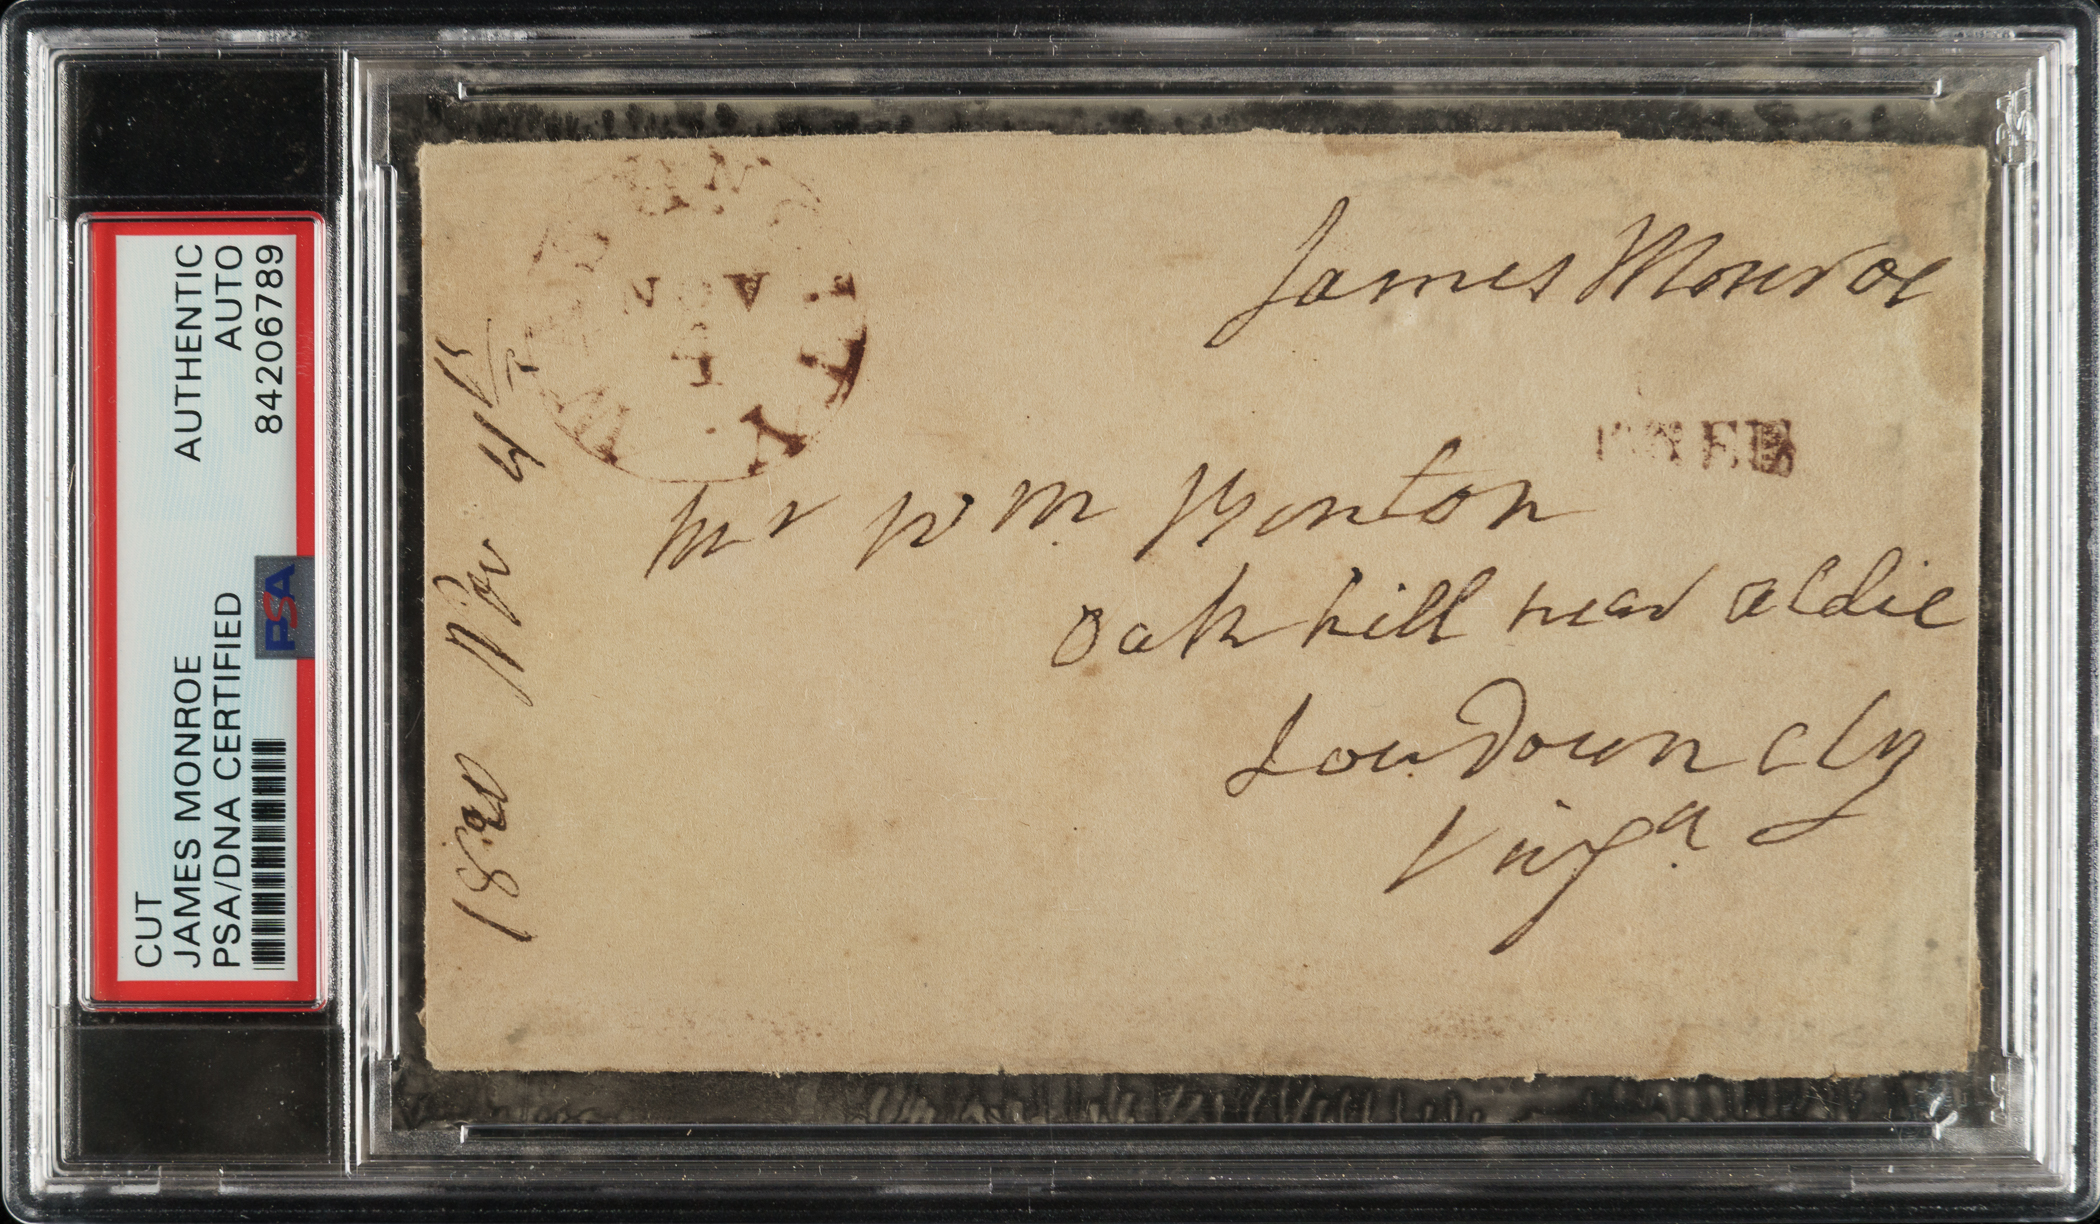 CUT
JAMES MONROE
PSA/DNA CERTIFIED
AUTHENTIC
AUTO
84206789
PSA
James Monroe
FREE
Mr Wm Benton
Oak hill near aldie
Loudoun cty
Virga
Nov 4th